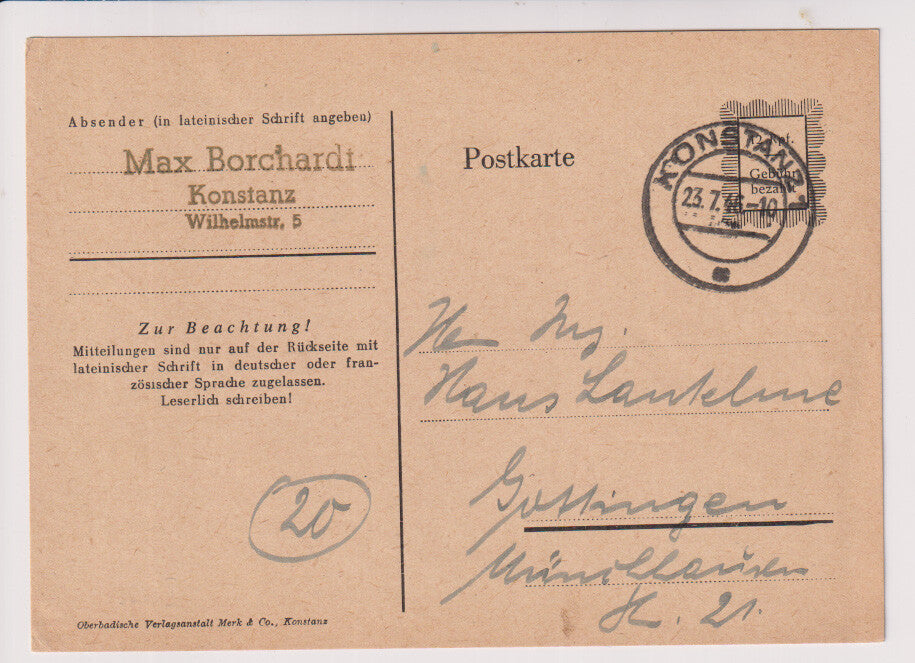 Absender (in lateinischer Schrift angeben)
Max Borchardt
Konstanz
Wilhelmstr. 5
Zur Beachtung!
Mitteilungen sind nur auf der Rückseite mit
lateinischer Schrift in deutscher oder fran-
zösischer Sprache zugelassen.
Leserlich schreiben!
20
Oberbadische Verlagsanstalt Merk & Co., Konstanz
Postkarte
Gebühr
bezahlt
KONSTANZ 1
23.7.46-10
Hans
Göttingen
21.